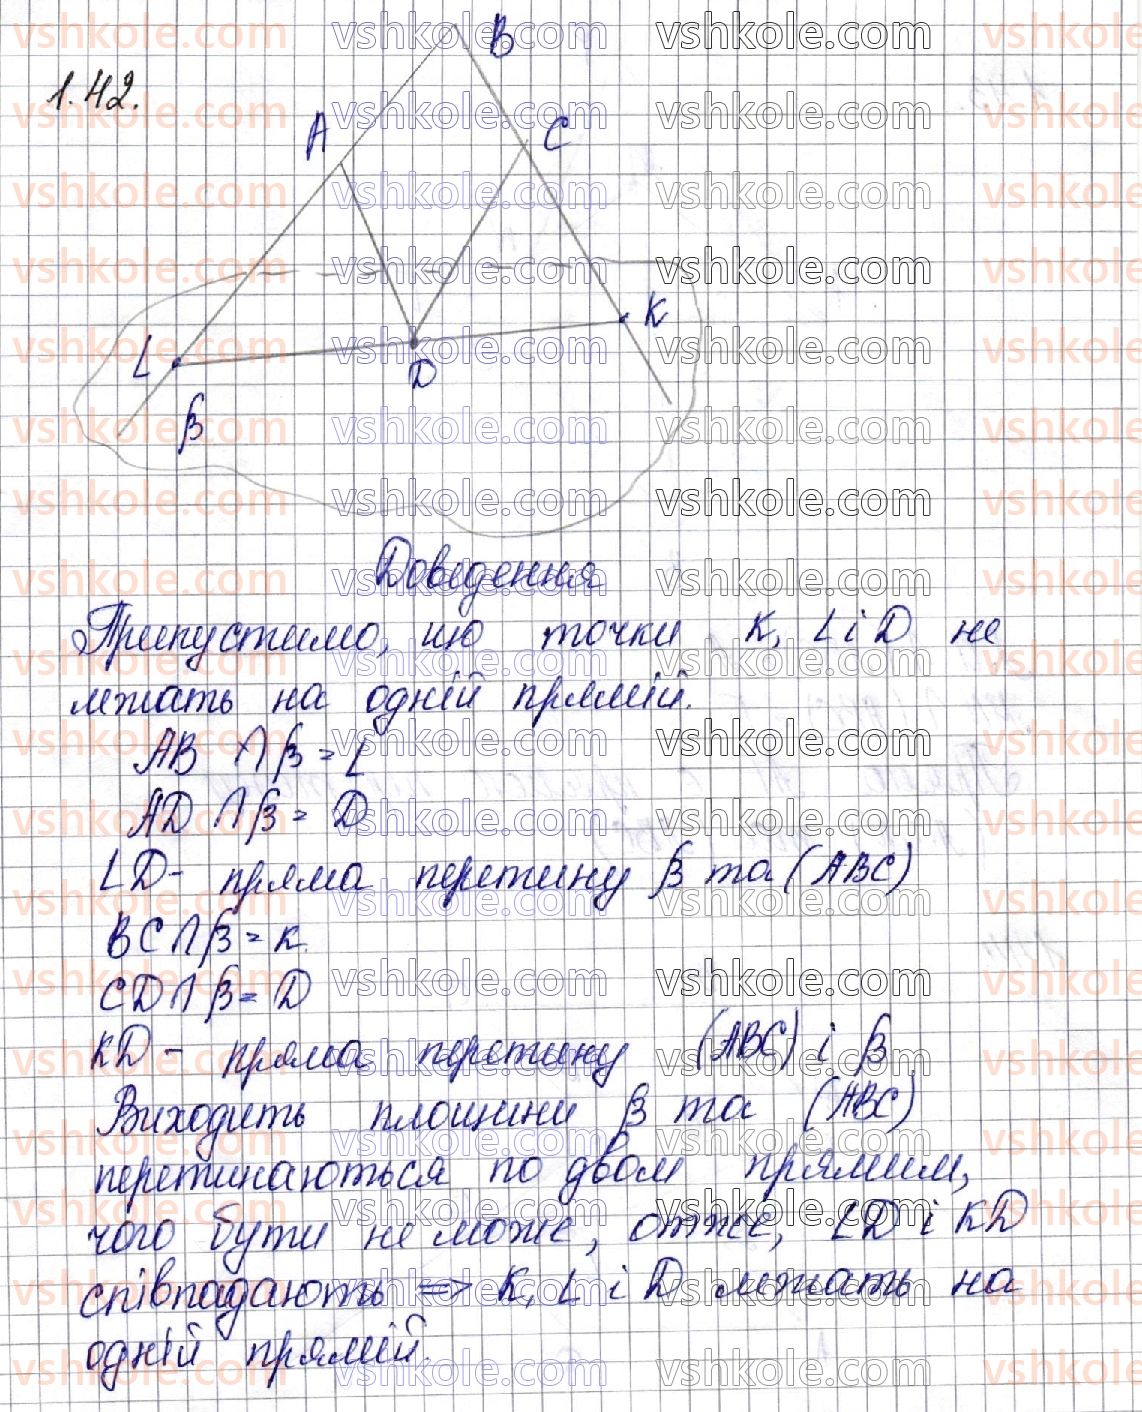 1.42.
B
A
C
L
K
D
β
Доведення
Припустимо, що точки K, L і D не
лежать на одній прямій.
AB ∩ β = L
AD ∩ β = D
LD - пряма перетину β та (ABC)
BC ∩ β = K.
CD ∩ β = D
KD - пряма перетину (ABC) і β
Виходить площини β та (ABC)
перетинаються по двом прямим,
чого бути не може, отже, LD і KD
співпадають => K, L і D лежать на
одній прямій.
vshkole.com